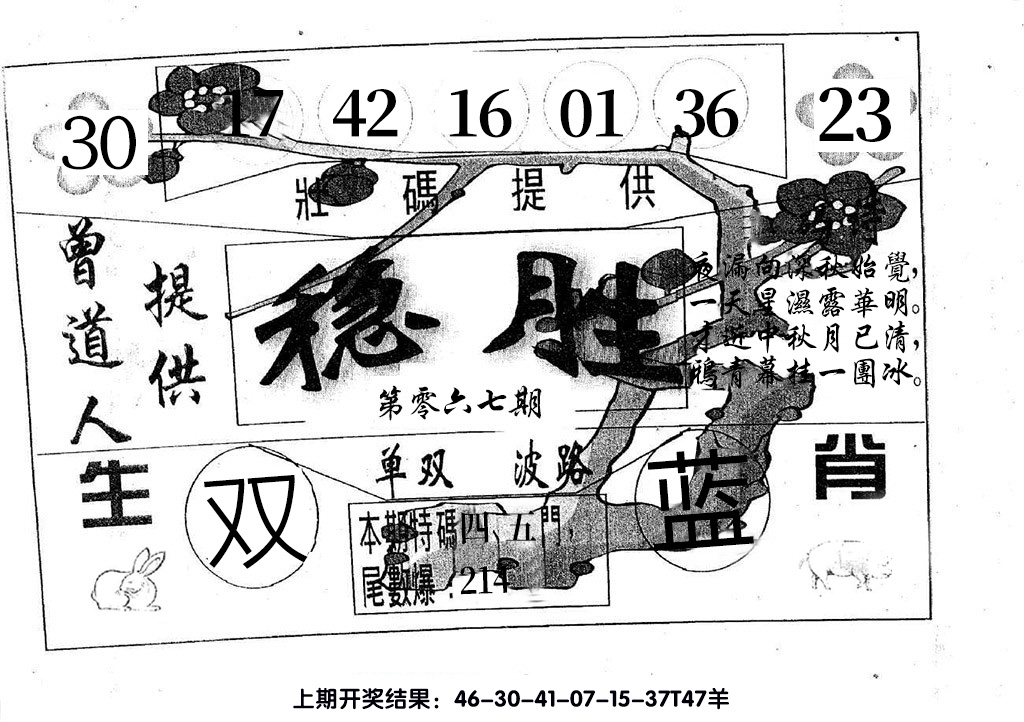 30 17 42 16 01 36 23
壯碼提供
曾道人
提供
稳胜
第零六七期
特
夜漏向深秋始覺，
一天星濕露華明。
才近中秋月已清，
鴉青幕挂一團冰。
生肖
单双 波路
双
蓝
本期特碼四、五門，
尾數爆：214
上期开奖结果：46-30-41-07-15-37T47羊